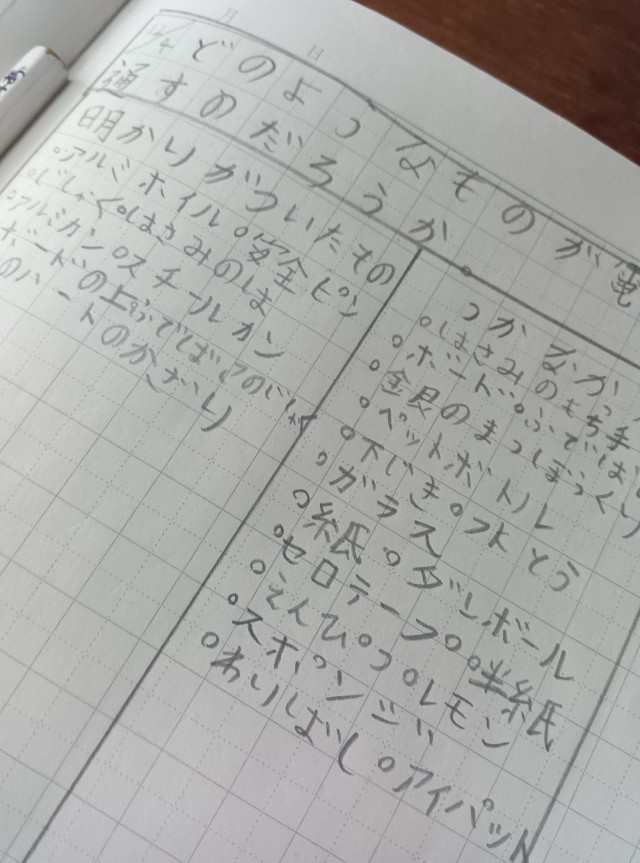 どのようなものが電
通すのだろうか
明かりがついたもの
。アルミホイル。安全ピン
。じしゃく。はさみのは
アルミカン。スチールカン
ボードの ふでばこのい
のハートのかざり
つかなか
。はさみのもち手
。ボード。ふでば
。金銀のまつぼっくり
。ペットボトル
。下じき。フットとう
。ガラス
。紙。ダンボール
。セロテープ。半紙
。えんぴつ。レモン
。スポンジ
。わりばし。アイパット